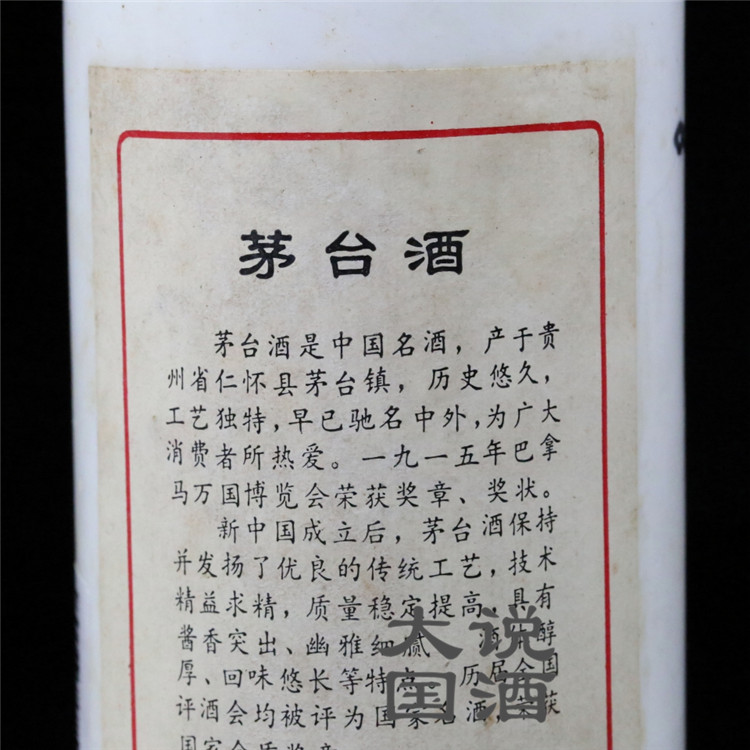 茅台酒
茅台酒是中国名酒，产于贵
州省仁怀县茅台镇，历史悠久，
工艺独特，早已驰名中外，为广大
消费者所热爱。一九一五年巴拿
马万国博览会荣获奖章、奖状。
新中国成立后，茅台酒保持
并发扬了优良的传统工艺，技术
精益求精，质量稳定提高，具有
酱香突出、幽雅细腻 酒体醇
厚、回味悠长等特点 历届全国
评酒会均被评为国家名酒，荣获
国家金质奖章
大说
国酒